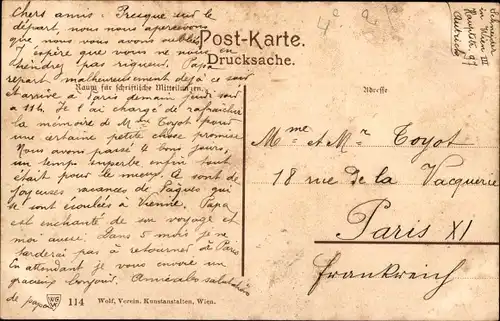 Chers amis. Presque sur le
départ, nous nous apercevons
que nous vous avons oubliés
J'espère que vous ne nous en
tiendrez pas rigueur. Papa
repart malheureusement déjà ce soir
et arrive à Paris demain jeudi soir
à 11h. Je l'ai chargé de rafraîchir
la mémoire de Mme Toyot pour
une certaine petite chose promise
Nous avons passé de bons jours,
un temps superbe enfin tout
était pour le mieux. Ce sont de
joyeuses vacances de Pâques qui
se sont écoulées à Vienne. Papa
est enchanté de son voyage et
moi aussi. Dans 5 mois je ne
tarderai pas à retourner à Paris
En attendant je vous envoie un
gracieux bonjour. Amicales salutations
de papa
Post-Karte.
Drucksache.
Raum für schriftliche Mitteilungen.
Adresse
Schneider
in Wien III
Hauptstr. 97
Autriche
Mme et Mr Toyot
18 rue de la Vacquerie
Paris XI
Frankreich
114 Wolf, Verein. Kunstanstalten, Wien.